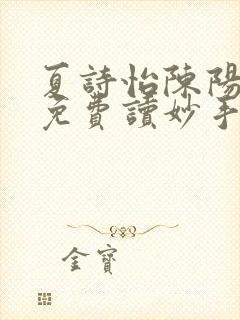 夏詩怡陳陽
免費讀妙手
金寶